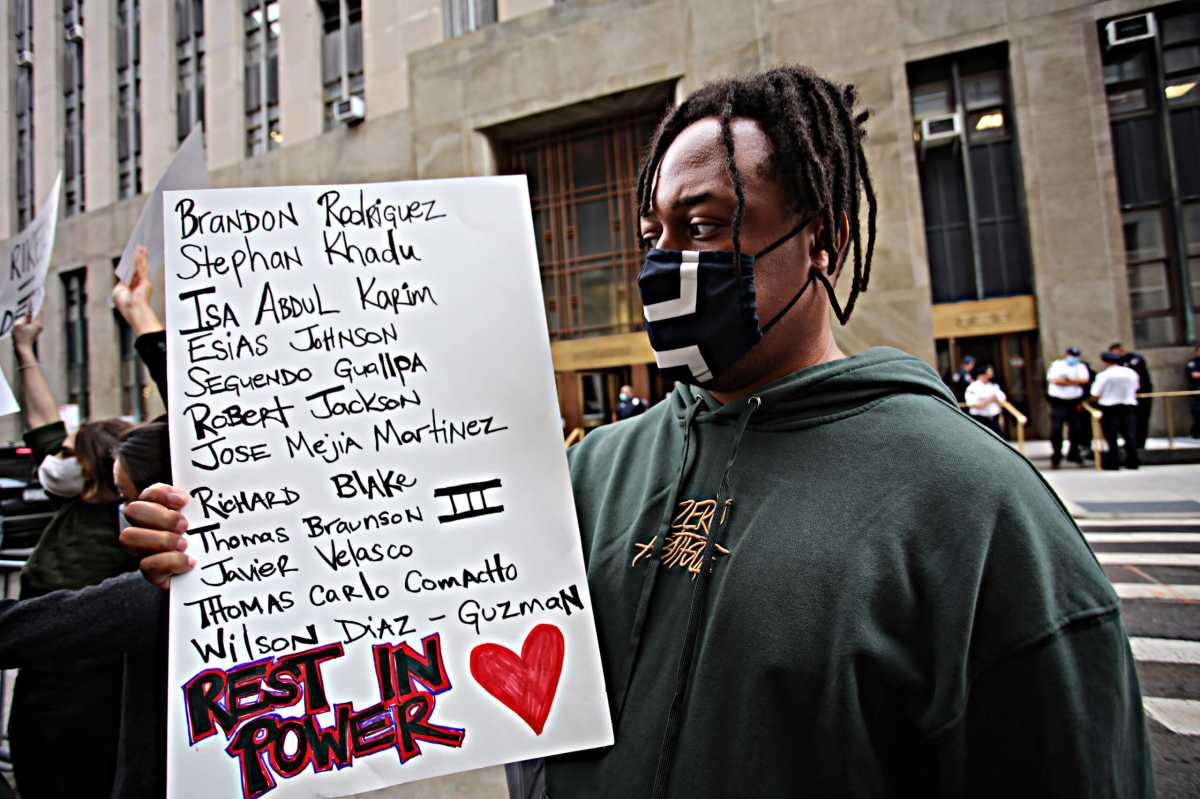 Brandon Rodriguez
Stephan Khadu
Isa Abdul Karim
Esias Johnson
Seguendo Guallpa
Robert Jackson
Jose Mejia Martinez
Richard Blake
Thomas Braunson III
Javier Velasco
Thomas Carlo Comacho
Wilson Diaz-Guzman
REST IN
POWER
ZERO